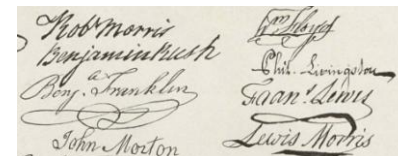 Robt Morris
Benjamin Rush
Benja Franklin
John Morton
Wm Floyd
Phil. Livingston
Frans Lewis
Lewis Morris